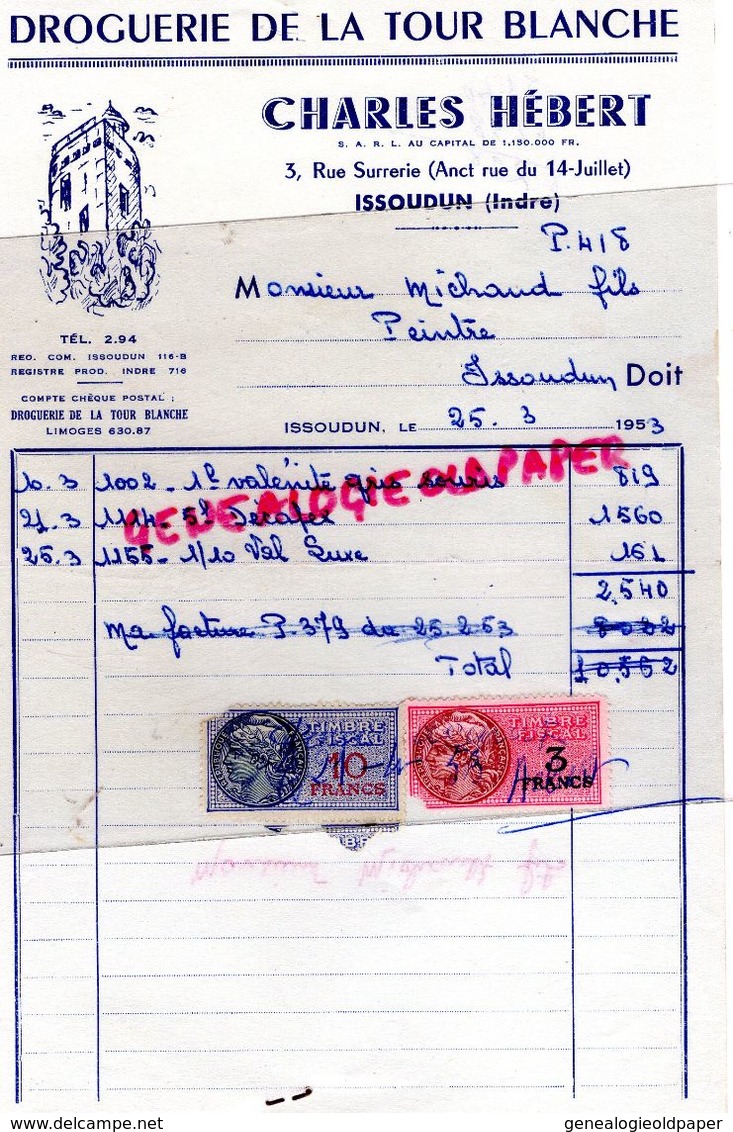 DROGUERIE DE LA TOUR BLANCHE
CHARLES HÉBERT
S. A. R. L. AU CAPITAL DE 1.150.000 FR.
3, Rue Surrerie (Anct rue du 14-Juillet)
ISSOUDUN (Indre)
P. 418
Monsieur Michaud fils
Peintre
Issoudun Doit
TÉL. 2.94
REG. COM. ISSOUDUN 116-B
REGISTRE PROD. INDRE 716
COMPTE CHÈQUE POSTAL :
DROGUERIE DE LA TOUR BLANCHE
LIMOGES 630.87
ISSOUDUN, LE 25. 3 1953
10.3 1002 - 1l valénite gris souris 819
GENEALOGIE OLD PAPER
21.3 1114 - 5l Décapex 1560
25.3 1155 - 1/10 Val Luxe 161
2,540
Ma facture P. 379 du 25.2.53 8022
Total 10,562
TIMBRE FISCAL
10 FRANCS
TIMBRE FISCAL
3 FRANCS
genealogieoldpaper